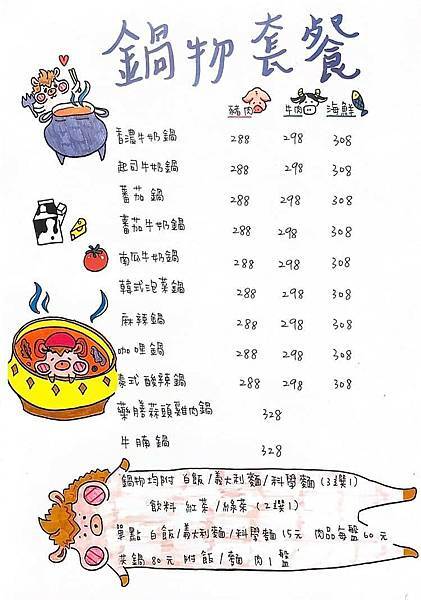 鍋物套餐
豬肉 牛肉 海鮮
香濃牛奶鍋 288 298 308
起司牛奶鍋 288 298 308
蕃茄鍋 288 298 308
蕃茄牛奶鍋 288 298 308
南瓜牛奶鍋 288 298 308
韓式泡菜鍋 288 298 308
麻辣鍋 288 298 308
咖哩鍋 288 298 308
泰式酸辣鍋 288 298 308
藥膳蒜頭雞肉鍋 328
牛腩鍋 328
鍋物均附 白飯/義大利麵/科學麵 (3選1)
飲料 紅茶/綠茶 (2選1)
單點 白飯/義大利麵/科學麵 15元 肉品每盤 60元
共鍋 80元 附飯/麵 肉1盤